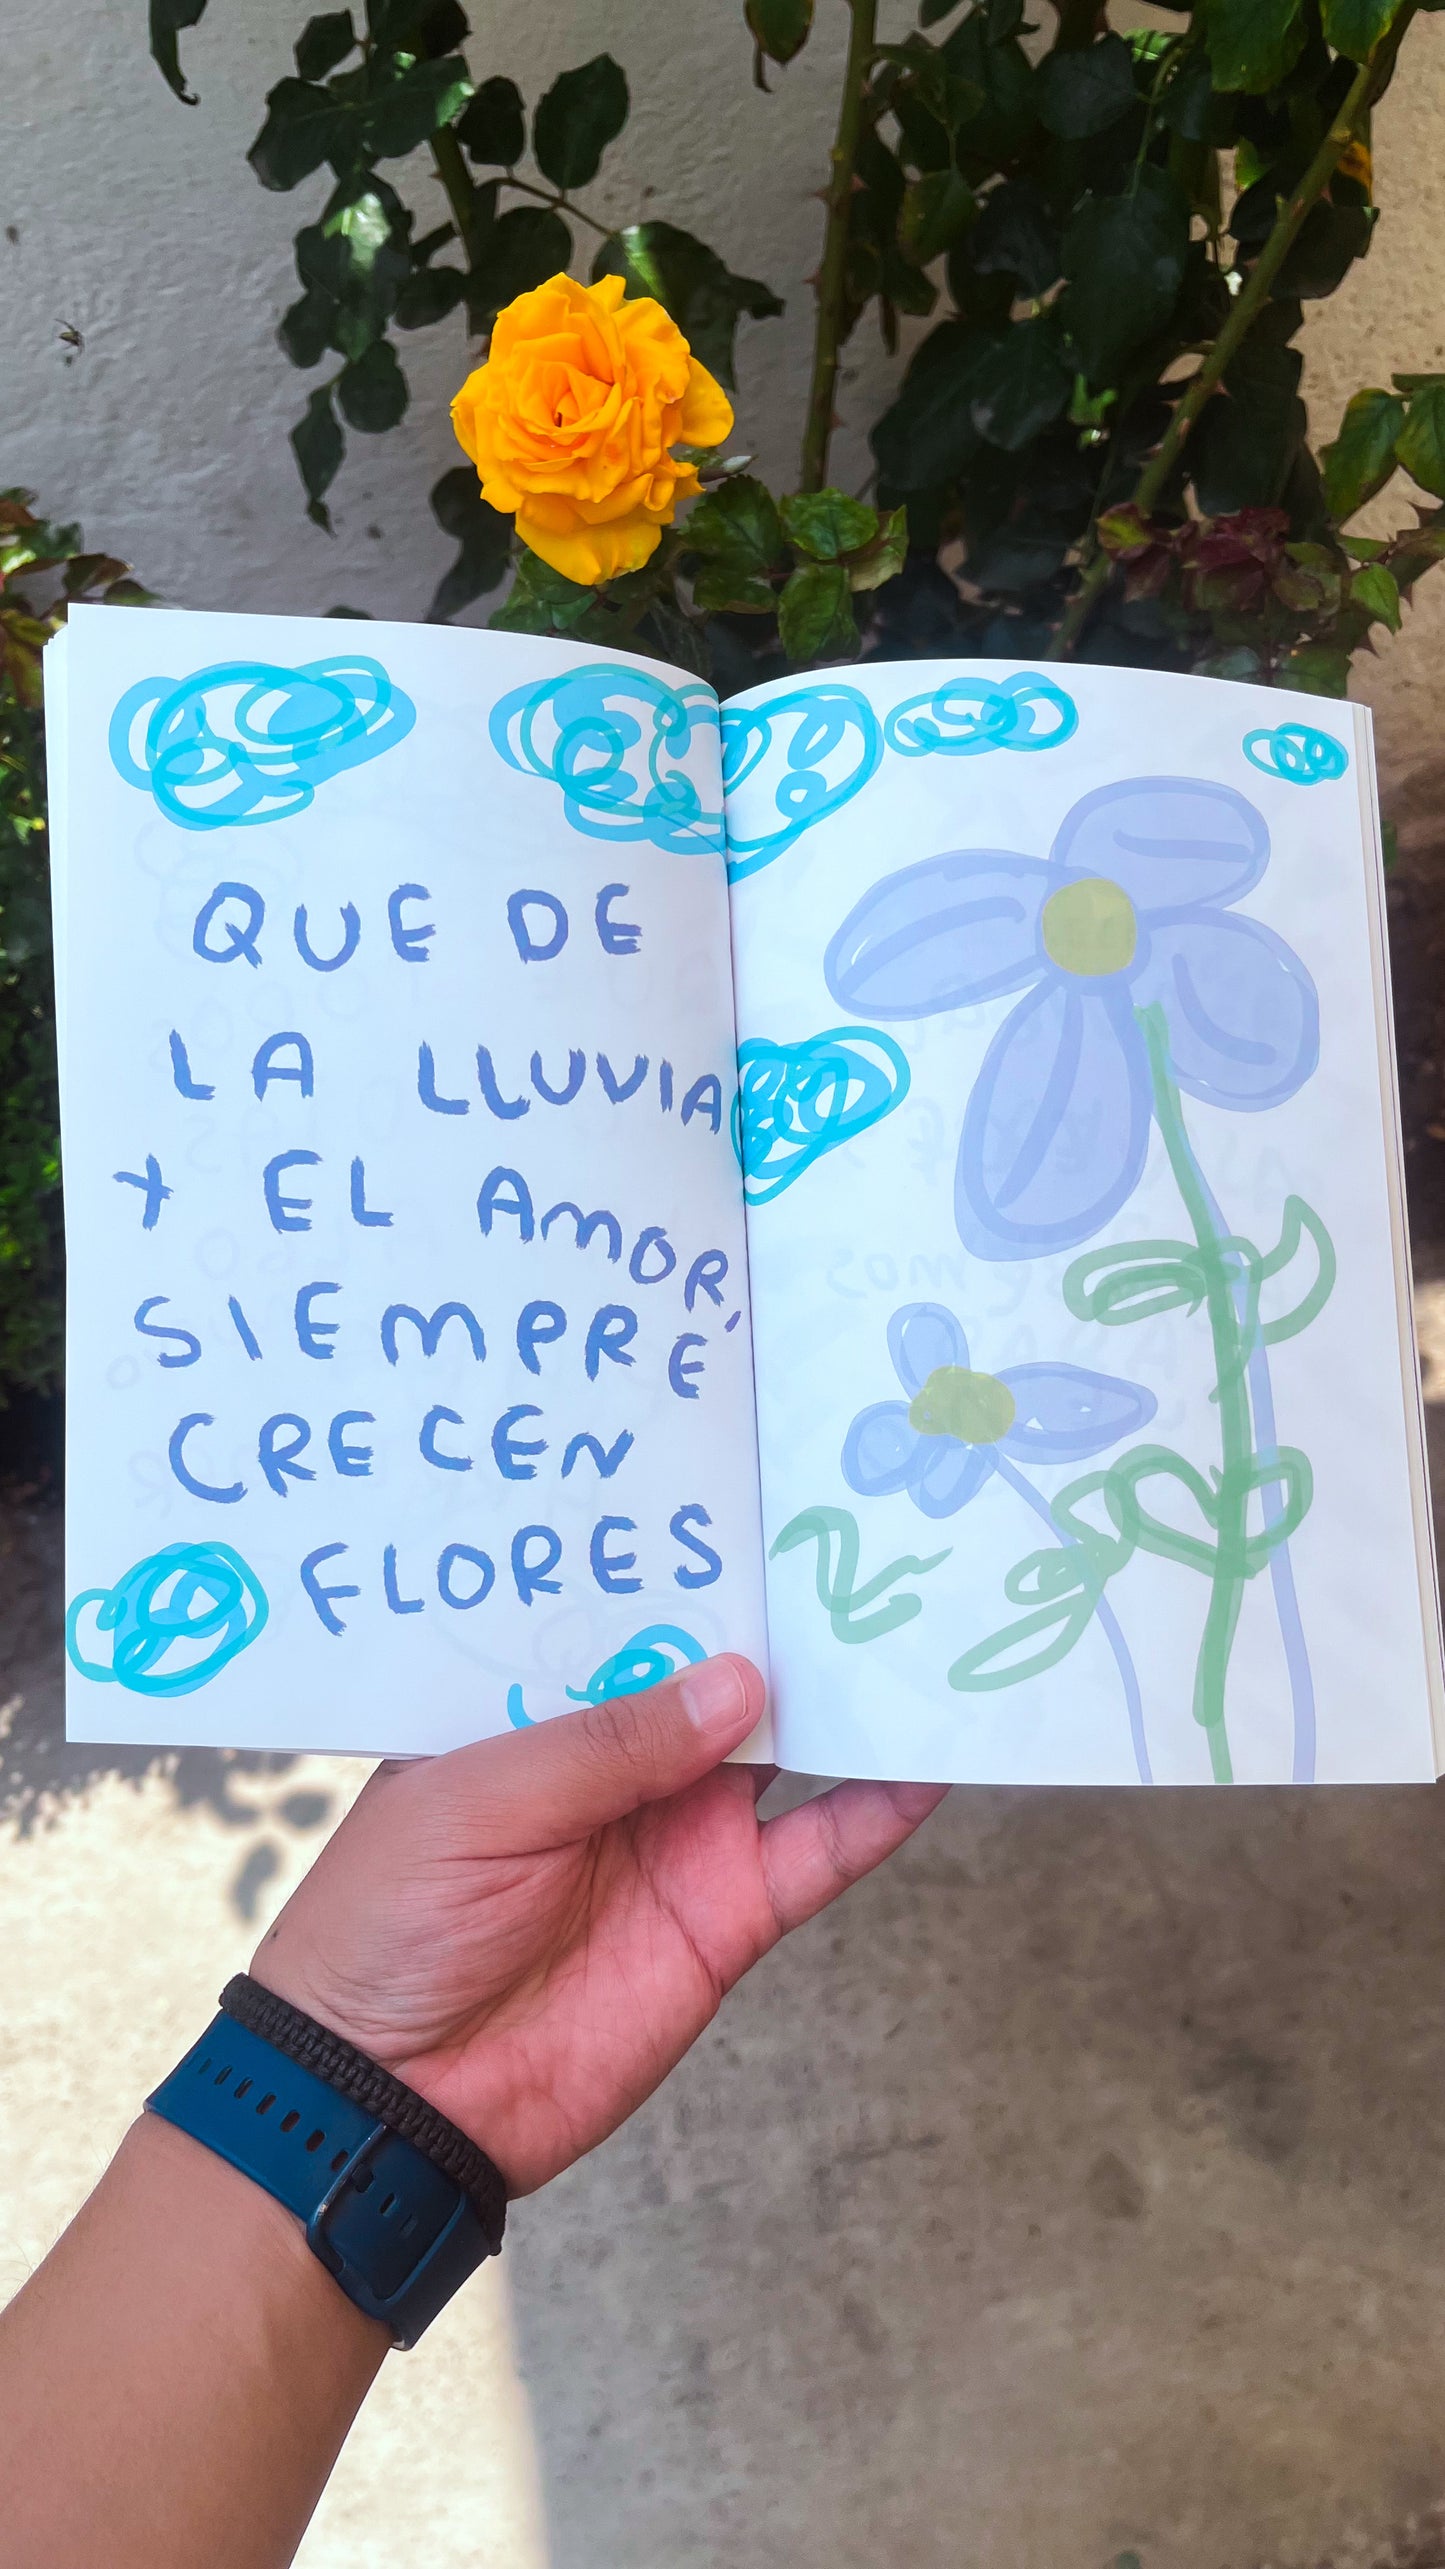 QUE DE
LA LLUVIA
Y EL AMOR,
SIEMPRE
CRECEN
FLORES